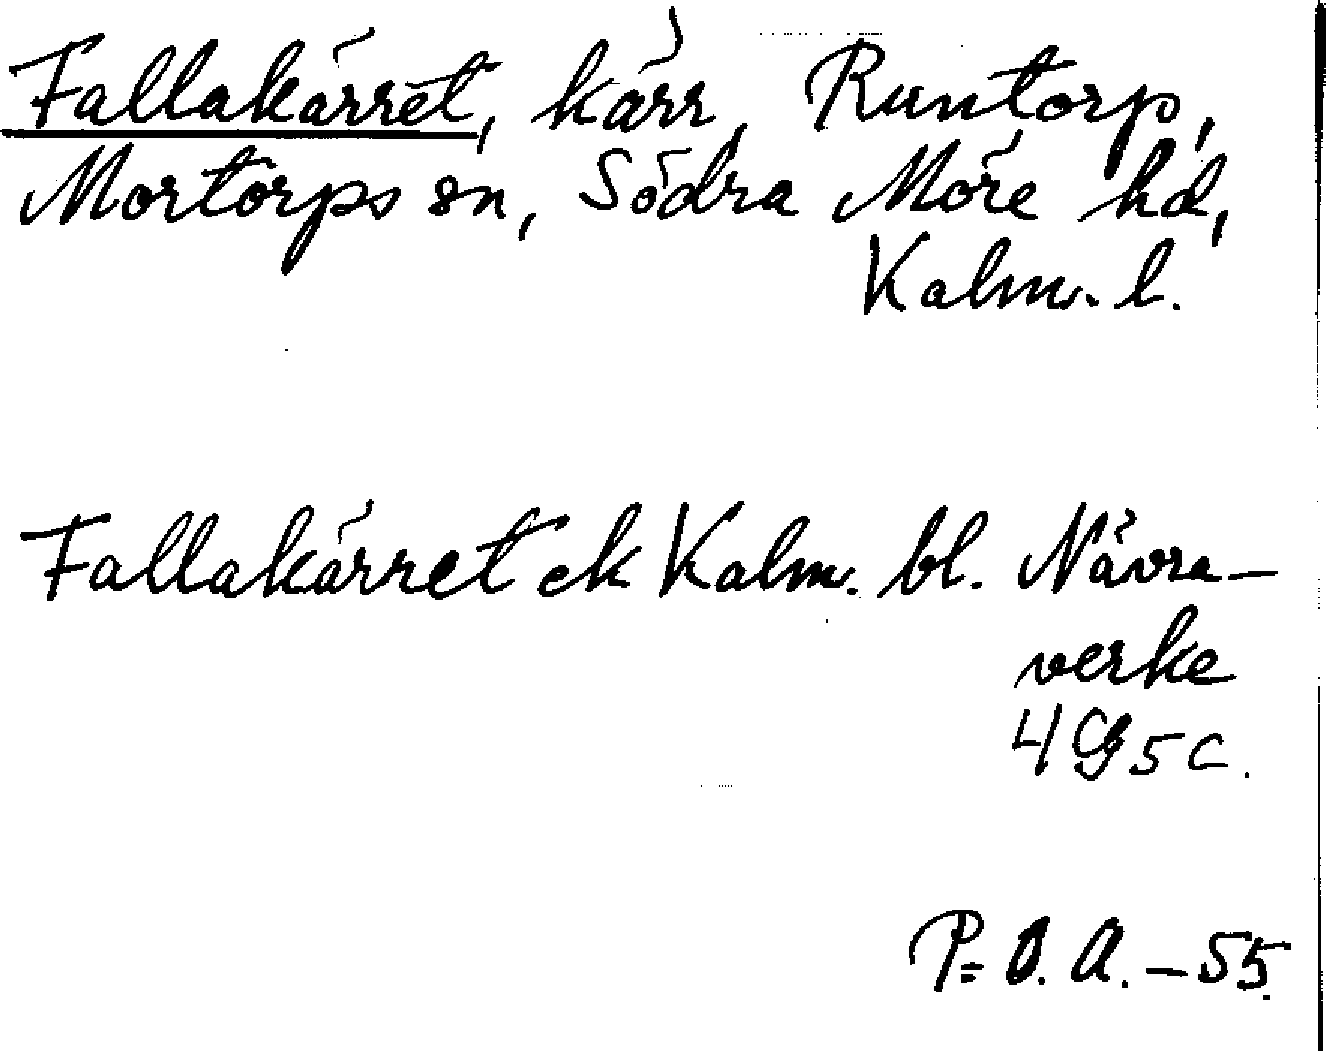 Fallakärret, kärr, Runtorp,
Mortorps sn, Södra Möre hd,
Kalm. l.
Fallakärret ek Kalm. bl. Nävra-
verke
4G5c.
P.O.A. - 55.